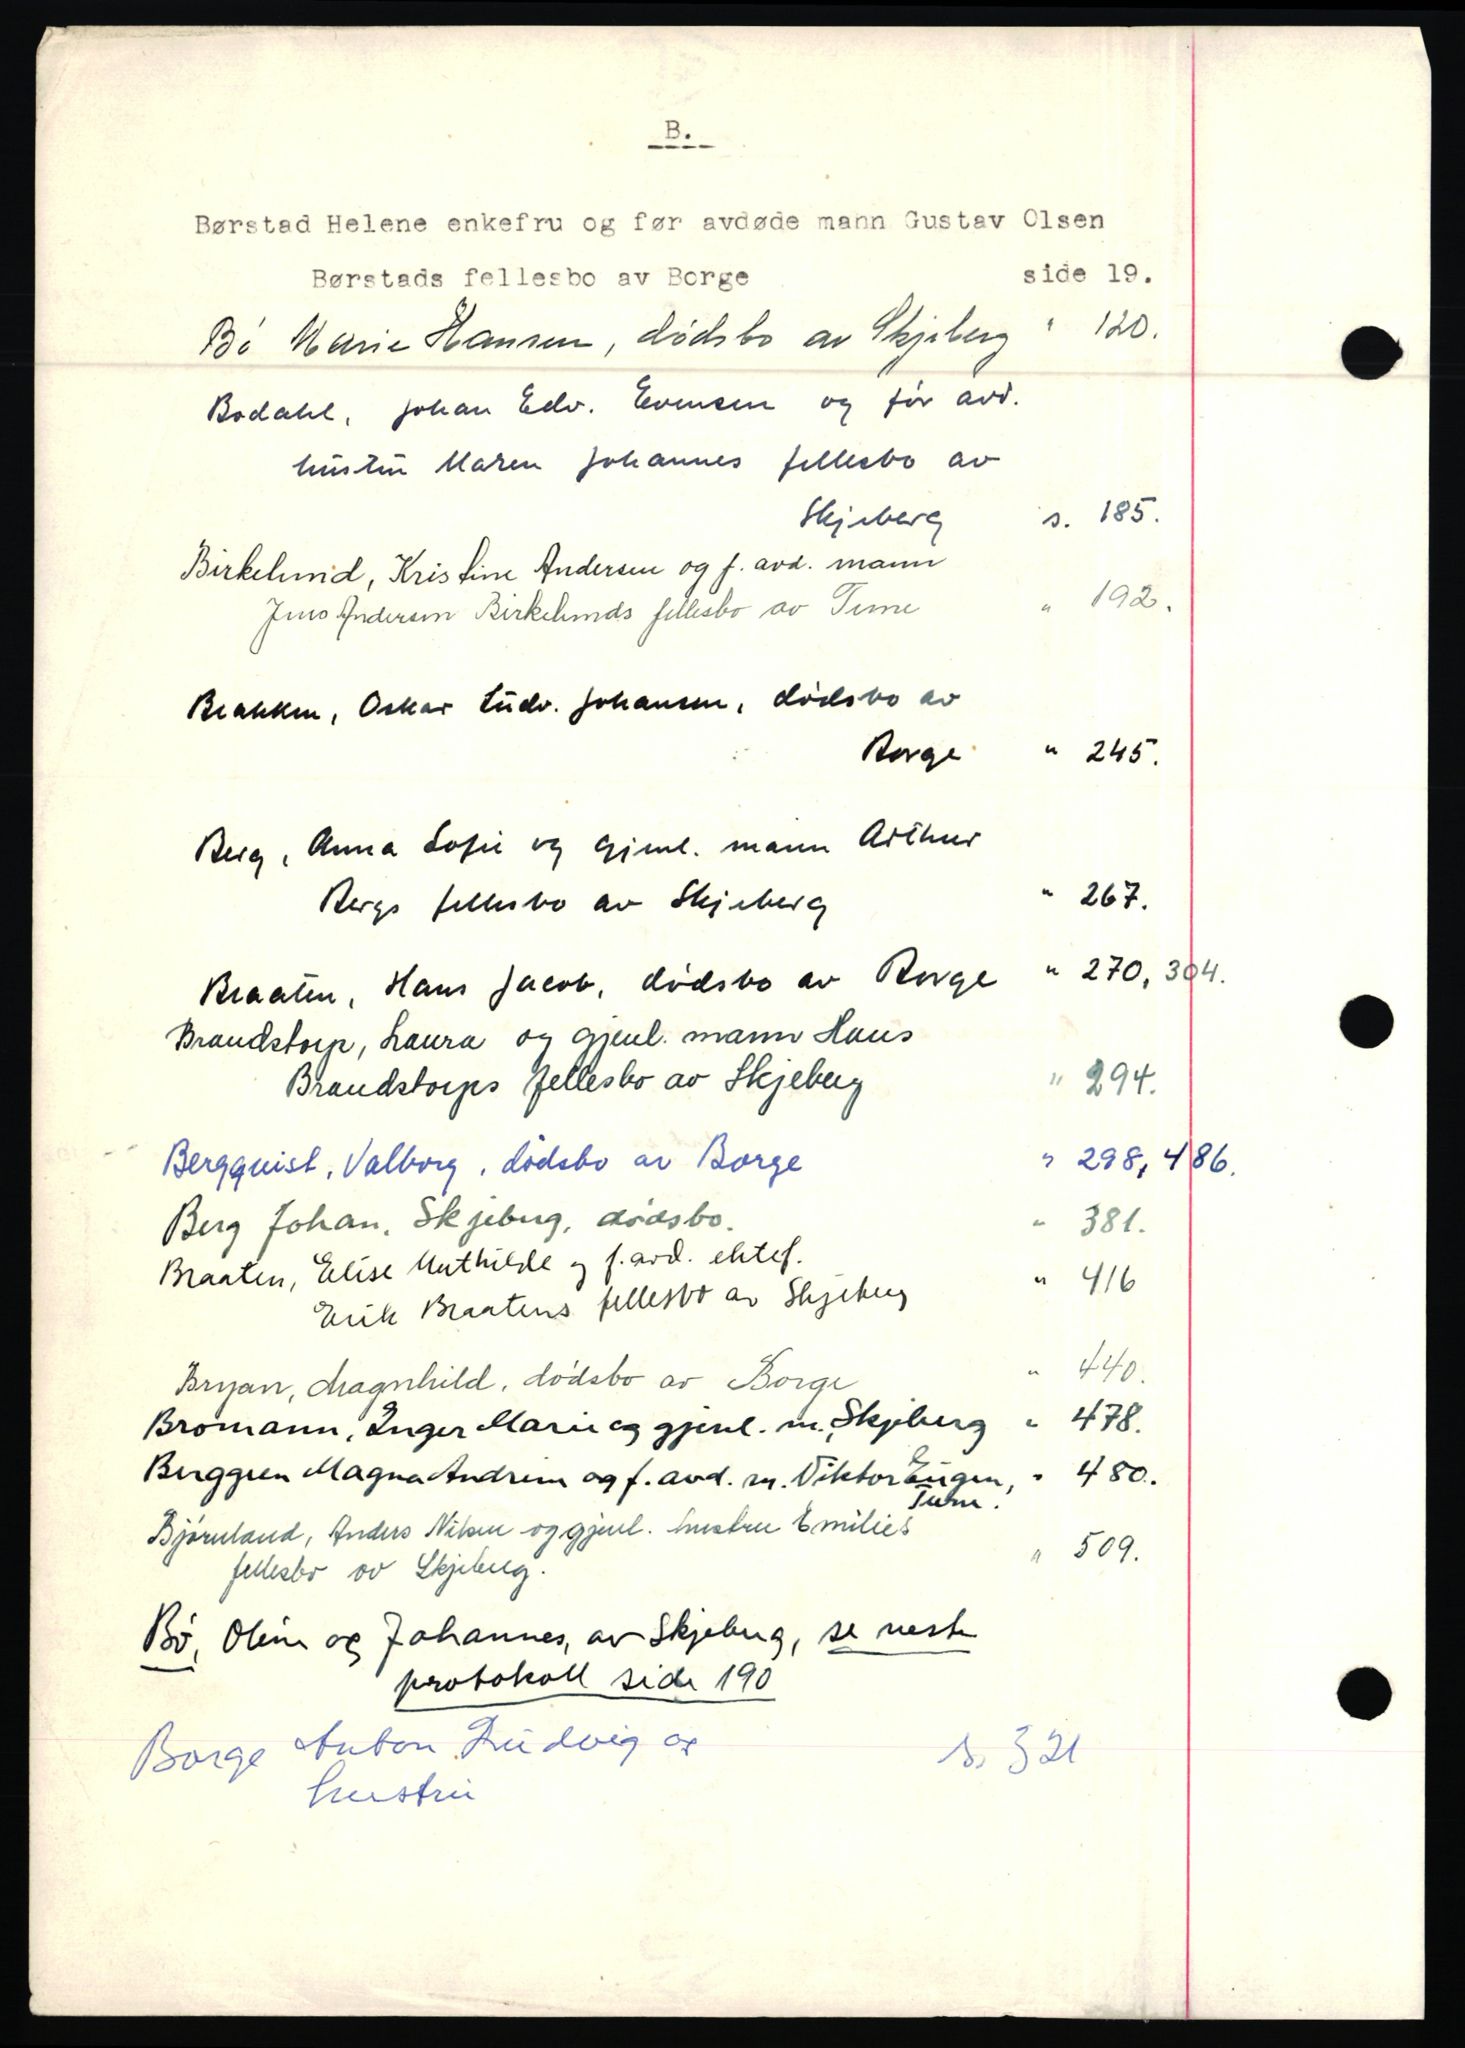 B.
Børstad Helene enkefru og før avdøde mann Gustav Olsen
Børstads fellesbo av Borge side 19.
Bö Marie Hansen, dödsbo av Skjeberg " 120.
Bodahl, Johan Edv. Evensen og før avd.
hustru Maren Johannes fellesbo av
Skjeberg s. 185.
Birkelund, Kristine Andersen og f. avd. mann
Jens Andersen Birkelunds fellesbo av Tune " 192.
Brakken, Oskar Ludv. Johansen, dødsbo av
Borge " 245.
Berg, Anna Sofie og gjenl. mann Arthur
Bergs fellesbo av Skjeberg " 267.
Braaten, Hans Jacob, dødsbo av Borge " 270, 304.
Brandstorp, Laura og gjenl. mann Hans
Brandstorps fellesbo av Skjeberg " 294.
Bergquist, Valborg, dödsbo av Borge " 298, 486.
Berg Johan, Skjeberg, dödsbo. " 381.
Braaten, Elise Mathilde og f. avd. ektef.
Erik Braatens fellesbo av Skjeberg " 416
Bryan, Magnhild, dødsbo av Borge " 440.
Bromann, Inger Marie og gjenl. m. Skjeberg " 478.
Berggren Magna Andrine og f. avd. m. Viktor Eugen, " 480.
Tune.
Bjørnland, Anders Nilsen og gjenl. hustru Emilies
fellesbo av Skjeberg. " 509.
Bö, Oline og Johannes, av Skjeberg, se neste
protokoll side 190
Borge Anton Ludvig og s. 321
hustru